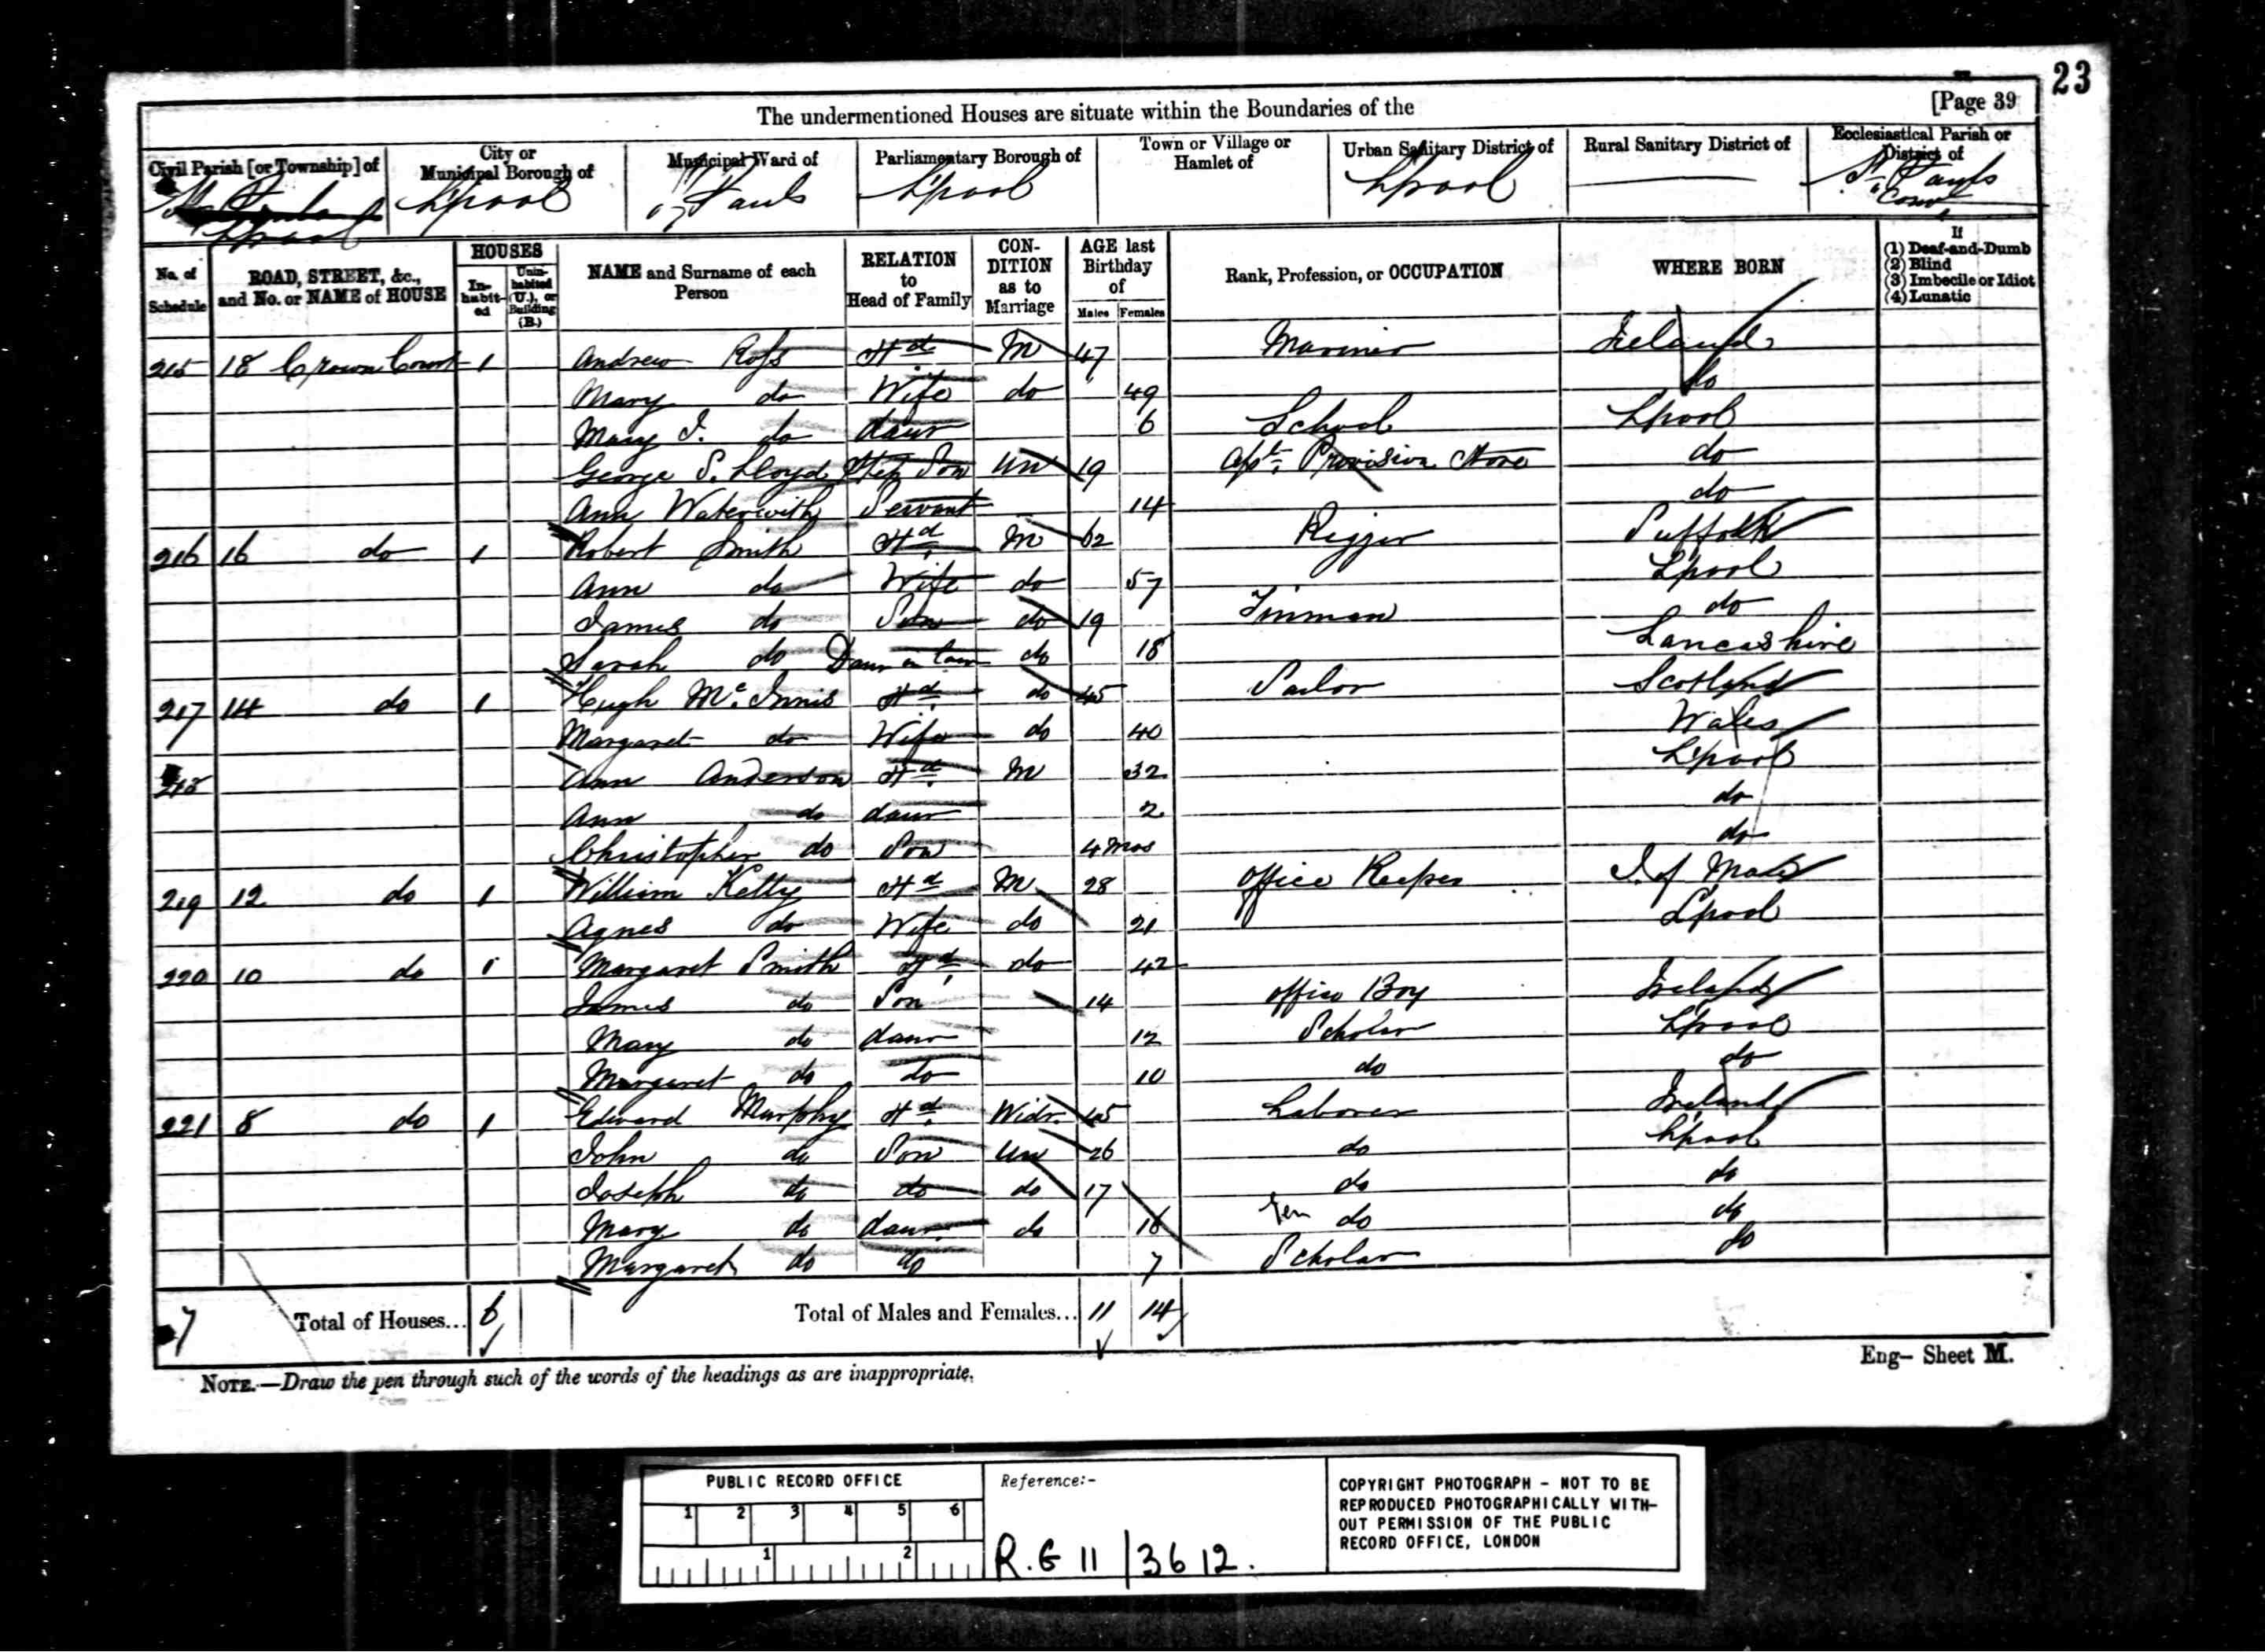 23
The undermentioned Houses are situate within the Boundaries of the [Page 39
Civil Parish [or Township] of
City or Municipal Borough of
Municipal Ward of
Parliamentary Borough of
Town or Village or Hamlet of
Urban Sanitary District of
Rural Sanitary District of
Ecclesiastical Parish or District of
Lpool
Lpool
St Pauls
Lpool
Lpool
St Pauls
No. of Schedule
ROAD, STREET, &c., and No. or NAME of HOUSE
HOUSES
In-habit-ed
Unin-habited (U.), or Building (B.)
NAME and Surname of each Person
RELATION to Head of Family
CON-DITION as to Marriage
AGE last Birthday of
Males
Females
Rank, Profession, or OCCUPATION
WHERE BORN
If
(1) Deaf-and-Dumb
(2) Blind
(3) Imbecile or Idiot
(4) Lunatic
215 18 Crown Court 1 Andrew Ross Hd. M 47 Mariner Ireland
Mary do Wife do 49 do
Mary J. do daur 6 School Lpool
George S. Lloyd Step Son Un 19 Provision Store do
Ann Servant 14 do
216 16 do 1 Robert Smith Hd. M 62 Rigger Suffolk
Ann do Wife do 57 Lpool
James do Son do 19 Tinman do
Sarah do Daur in law do 18 Lancashire
217 14 do 1 Hugh Mc.Innis Hd. do 45 Sailor Scotland
Margaret do Wife do 40 Wales
218 Ann Anderson Hd. M 32 Lpool
Ann do daur 2 do
Christopher do Son 4 Mos do
219 12 do 1 William Kelly Hd M 28 Office Keeper I. of Man
Agnes do Wife do 21 Lpool
220 10 do 1 Margaret Smith Hd. do 42
James do Son 14 Office Boy Ireland
Mary do daur 12 Scholar Lpool
Margaret do do 10 do do
221 8 do 1 Edward Murphy Hd. Widr. 45 Laborer Ireland
John do Son Un 26 do Lpool
Joseph do do do 17 do do
Mary do daur. do 16 do do
Margaret do do 7 Scholar do
7 Total of Houses... 6 Total of Males and Females... 11 14
NOTE.—Draw the pen through such of the words of the headings as are inappropriate.
Eng— Sheet M.
PUBLIC RECORD OFFICE
1 2 3 4 5 6
1 2
Reference:-
R.G 11 / 3612.
COPYRIGHT PHOTOGRAPH - NOT TO BE
REPRODUCED PHOTOGRAPHICALLY WITH-
OUT PERMISSION OF THE PUBLIC
RECORD OFFICE, LONDON